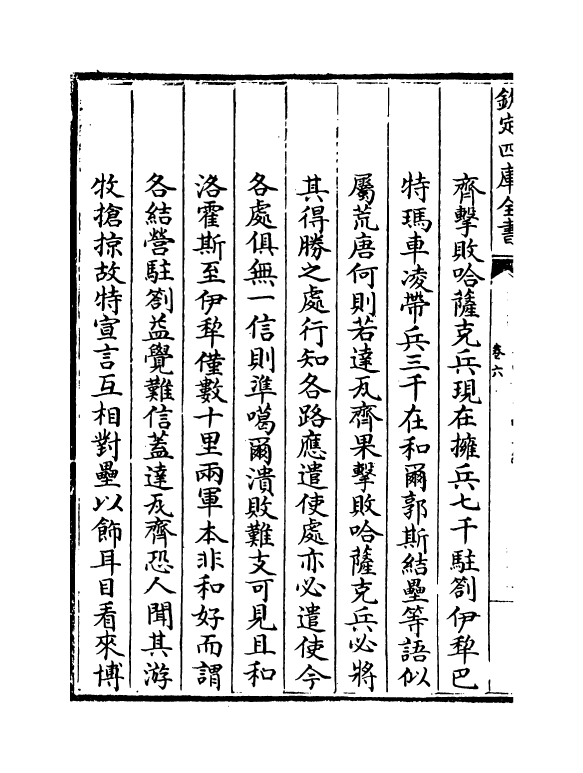 欽定四庫全書
卷六
齊擊敗哈薩克兵現在擁兵七千駐劄伊犂巴
特瑪車凌帶兵三千在和爾郭斯結壘等語似
屬荒唐何則若達瓦齊果擊敗哈薩克兵必將
其得勝之處行知各路應遣使處亦必遣使今
各處俱無一信則準噶爾潰敗難支可見且和
洛霍斯至伊犂僅數十里兩軍本非和好而謂
各結營駐劄益覺難信葢達瓦齊恐人聞其游
牧搶掠故特宣言互相對壘以飾耳目看來博